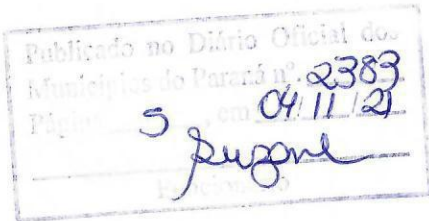 Publicado no Diário Oficial dos
Municípios do Paraná nº 2383
Página 5, em 04/11/21
Suzane
Funcionário